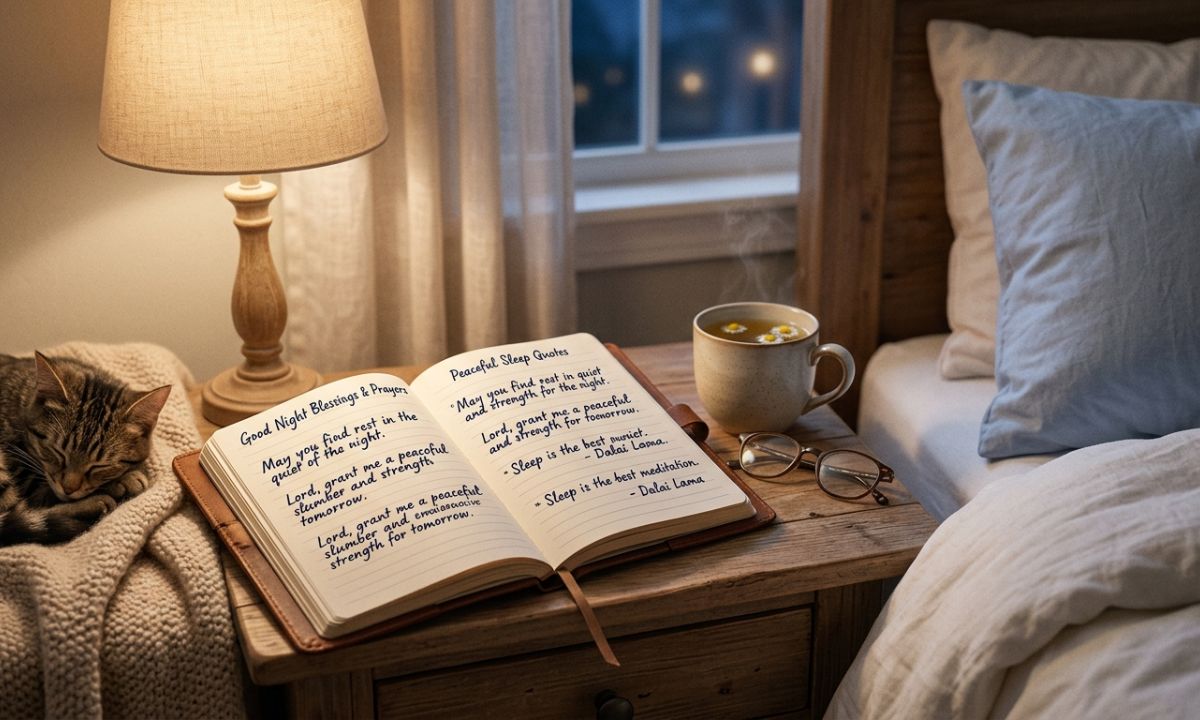 Good Night Blessings & Prayers
May you find rest in the
quiet of the night.
Lord, grant me a peaceful
slumber and strength
tomorrow.
Lord, grant me a peaceful
slumber and
strength for tomorrow.
Peaceful Sleep Quotes
"May you find rest in quiet
and strength for the night.
Lord, grant me a peaceful
and strength for
"Sleep is the best
- Dalai Lama.
"Sleep is the best meditation.
- Dalai Lama